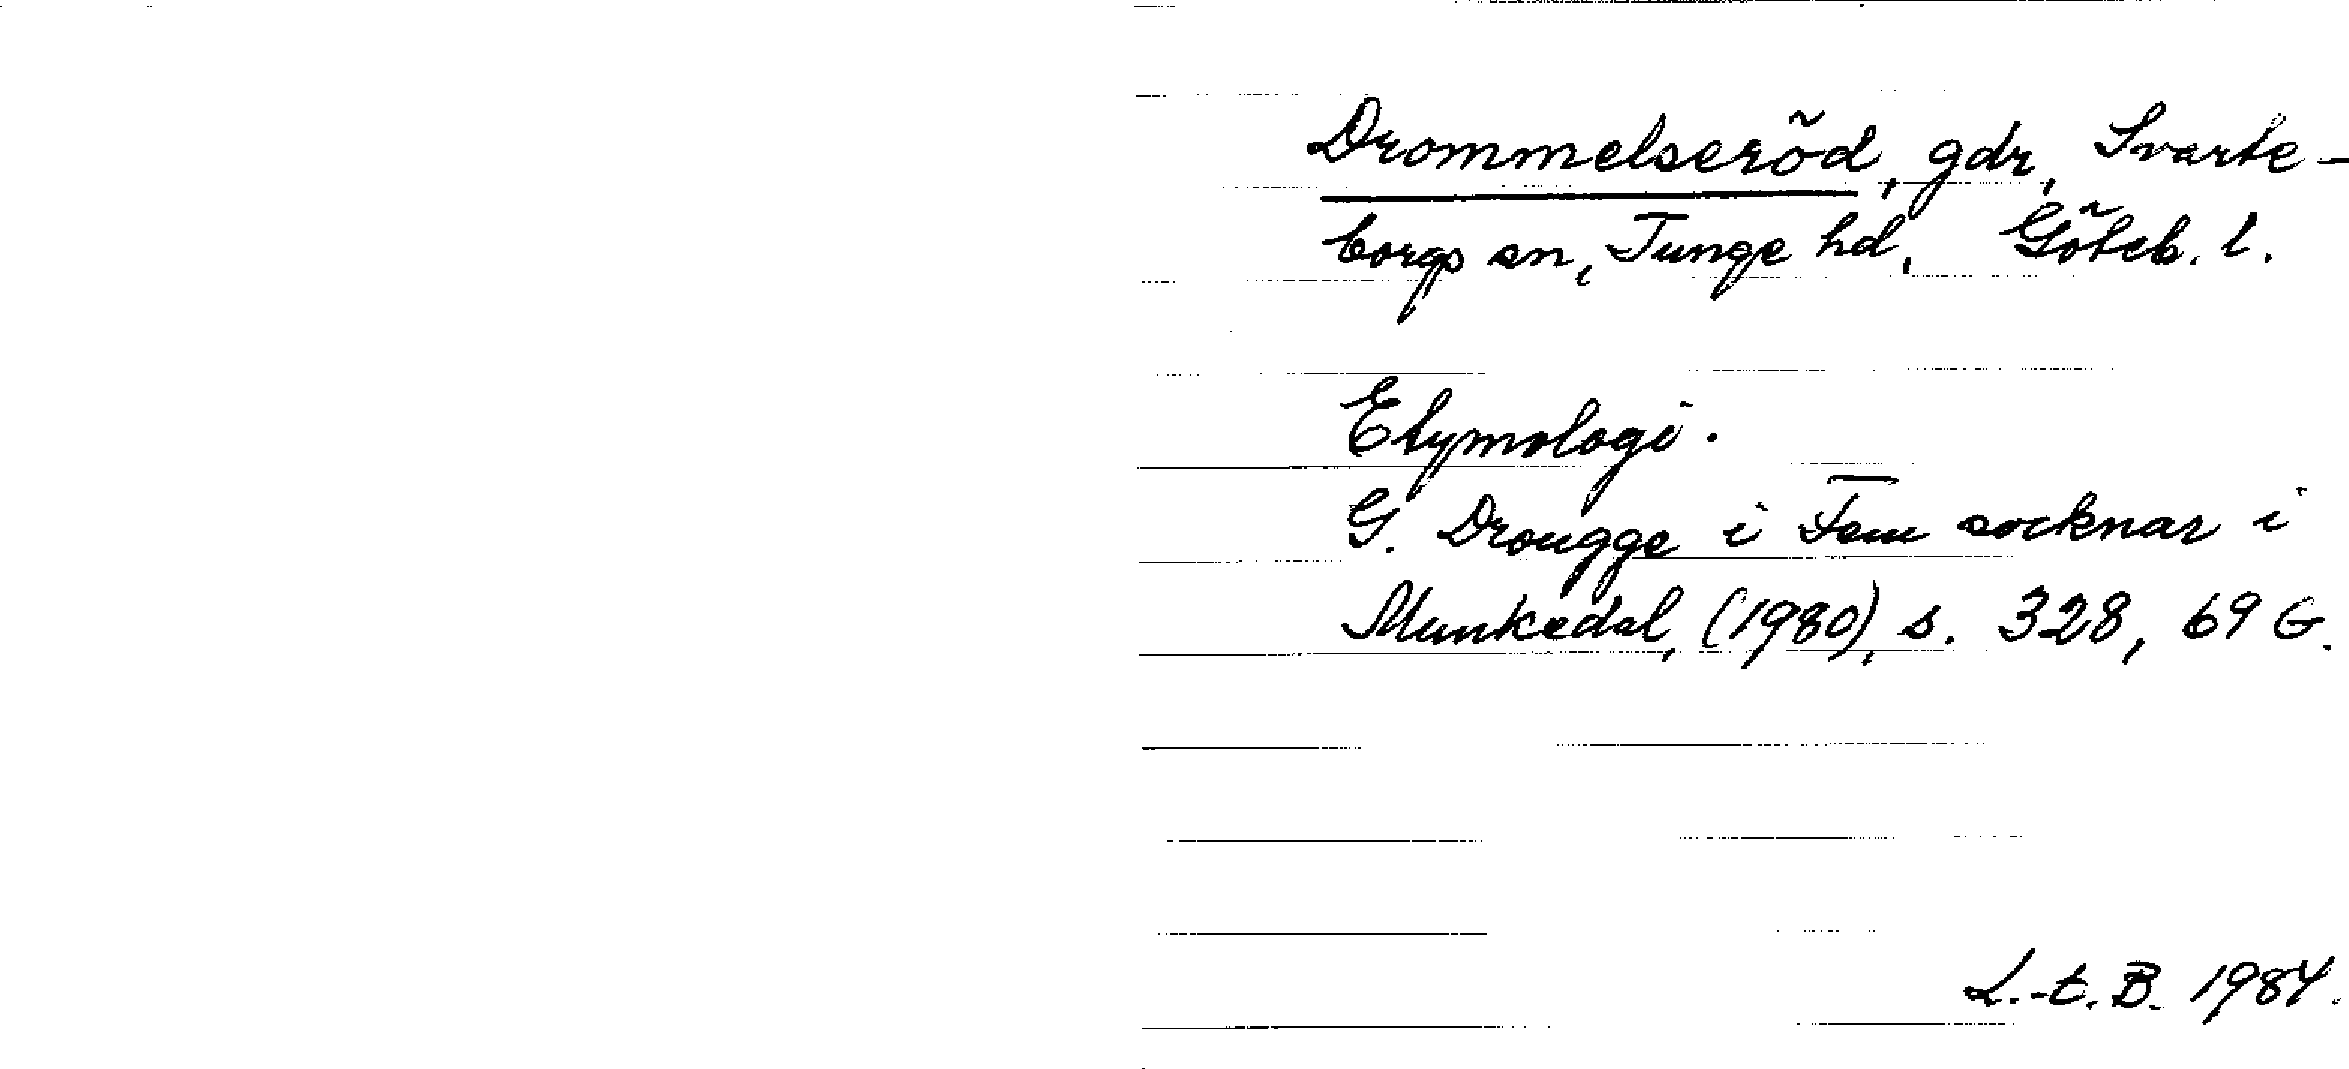 Drommelseröd, gdr, Svarte-
borgs sn, Tunge hd, Göteb. l.
Etymologi.
G. Drougge i Fem socknar i
Munkedal, (1980), s. 328, 69 G.
L.-E. B. 1984.